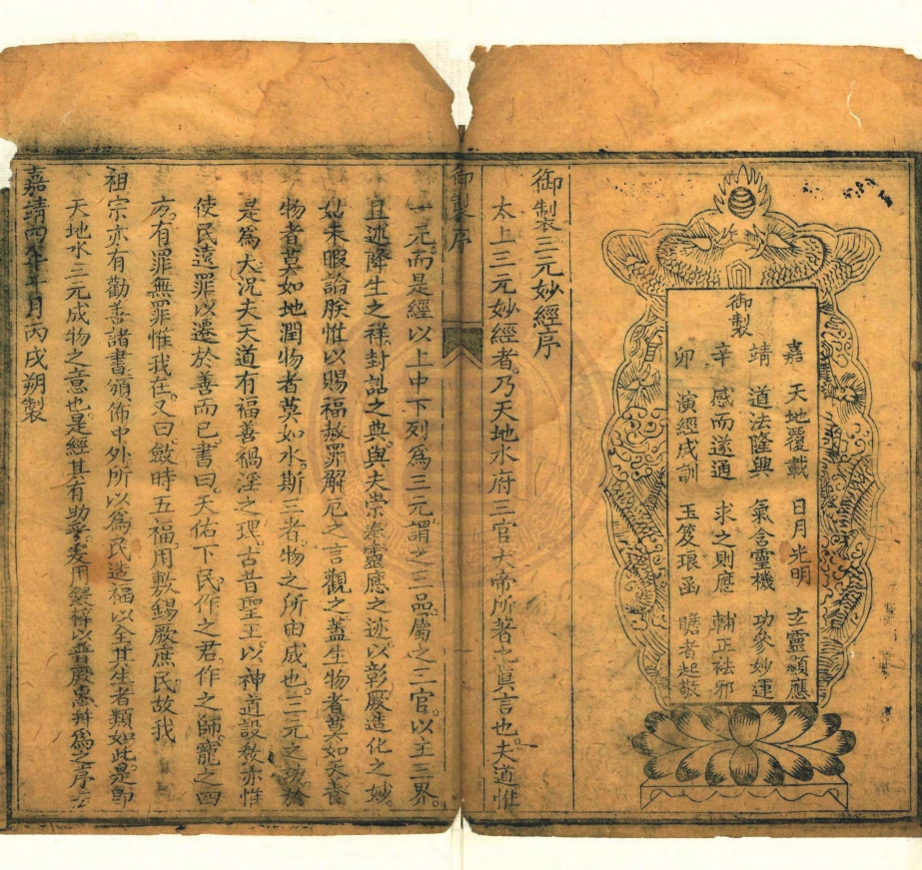 御製
嘉 天地覆載 日月光明 玄靈顯應
靖 道法隆興 氣含靈機 功參妙運
辛 感而遂通 求之則應 輔正袪邪
卯 演經成訓 玉笈琅函 瞻者起敬
御製三元妙經序
太上三元妙經者。乃天地水府三官大帝所著之真言也。夫道惟
御製序
一元而是經以上中下列爲三元。謂之三品。屬之三官。以主三界。
且述降生之祥。封誥之典。與夫崇奉靈應之迹。以彰厥造化之妙。
姑未暇論。朕惟以賜福赦罪解厄之言觀之。蓋生物者莫如天。養
物者莫如地。潤物者莫如水。斯三者。物之所由成也。三元之功於
是爲大。況夫天道有福善禍淫之理。古昔聖王。以神道設教。亦惟
使民遠罪以遷於善而已。書曰。天佑下民。作之君。作之師。寵之四
方。有罪無罪惟我在。又曰。斂時五福。用敷錫厥庶民。故我
祖宗亦有勸善諸書。頒佈中外。所以爲民造福以全其生者類如此。是卽
天地水三元成物之意也。是經其有助乎。爰用鋟梓。以普厥惠。并爲之序云
嘉靖 年 月丙戌朔製